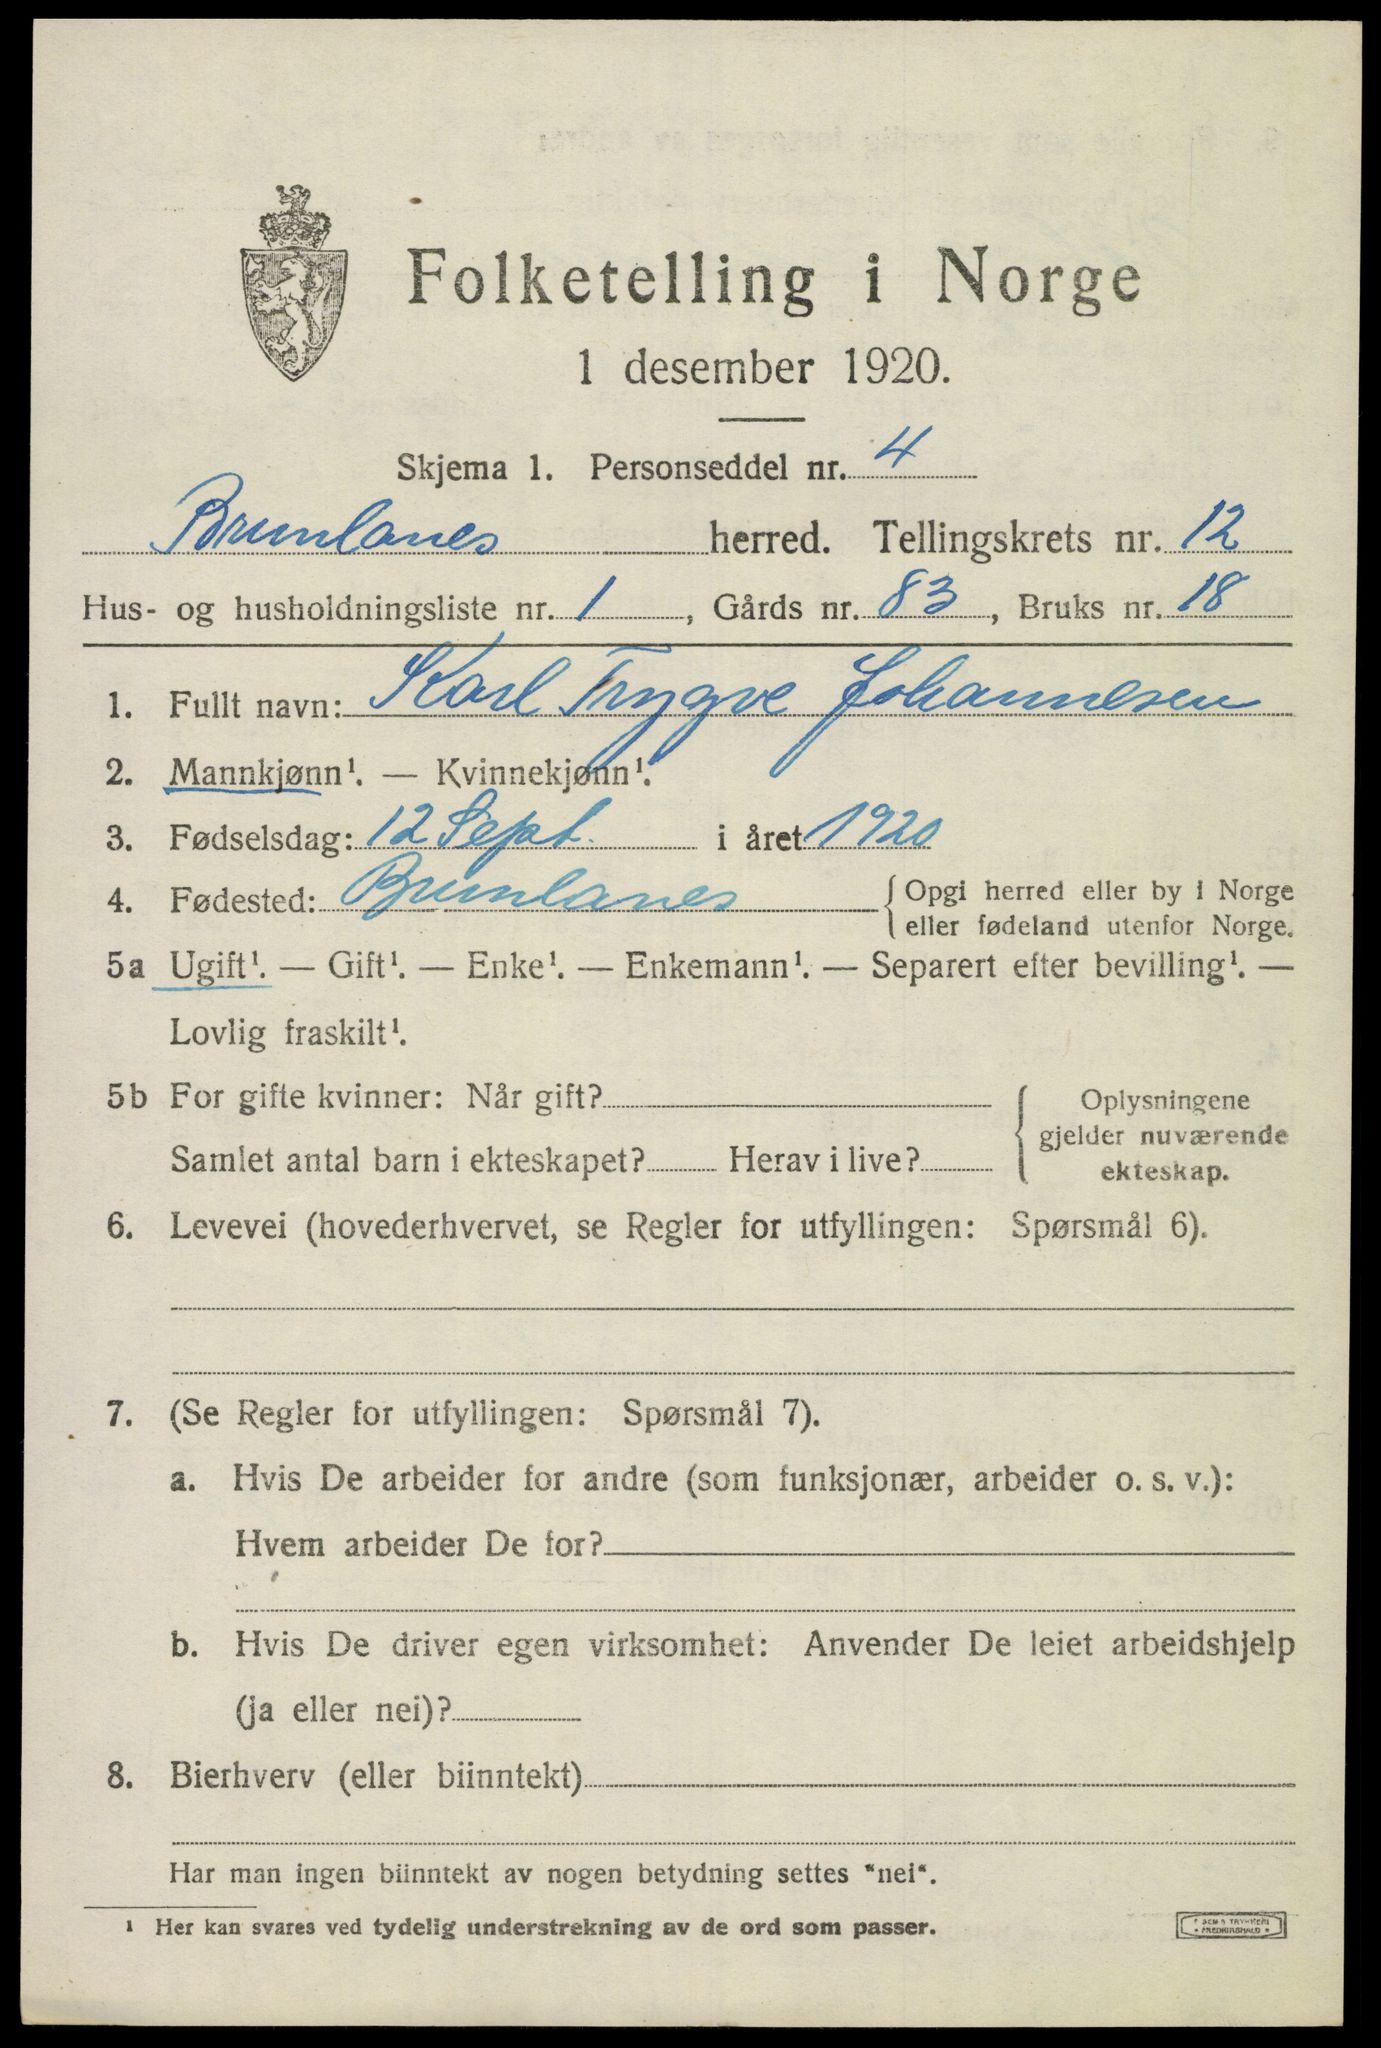 Folketelling i Norge
1 desember 1920.
Skjema 1. Personseddel nr. 4
Brunlanes herred. Tellingskrets nr. 12
Hus- og husholdningsliste nr. 1, Gårds nr. 83, Bruks nr. 18
1. Fullt navn: Karl Trygve Johannesen
2. Mannkjønn¹. — Kvinnekjønn¹.
3. Fødselsdag: 12 Sept. i året 1920
4. Fødested: Brunlanes { Opgi herred eller by i Norge
eller fødeland utenfor Norge.
5a Ugift¹. — Gift¹. — Enke¹. — Enkemann¹. — Separert efter bevilling¹. —
Lovlig fraskilt¹.
5b For gifte kvinner: Når gift? { Oplysningene
gjelder nuværende
Samlet antal barn i ekteskapet? Herav i live?
ekteskap.
6. Levevei (hovederhvervet, se Regler for utfyllingen: Spørsmål 6).
7. (Se Regler for utfyllingen: Spørsmål 7).
a. Hvis De arbeider for andre (som funksjonær, arbeider o. s. v.):
Hvem arbeider De for?
b. Hvis De driver egen virksomhet: Anvender De leiet arbeidshjelp
(ja eller nei)?
8. Bierhverv (eller biinntekt)
Har man ingen biinntekt av nogen betydning settes "nei".
¹ Her kan svares ved tydelig understrekning av de ord som passer.
TRYKKERI
FREDRIKSHALD